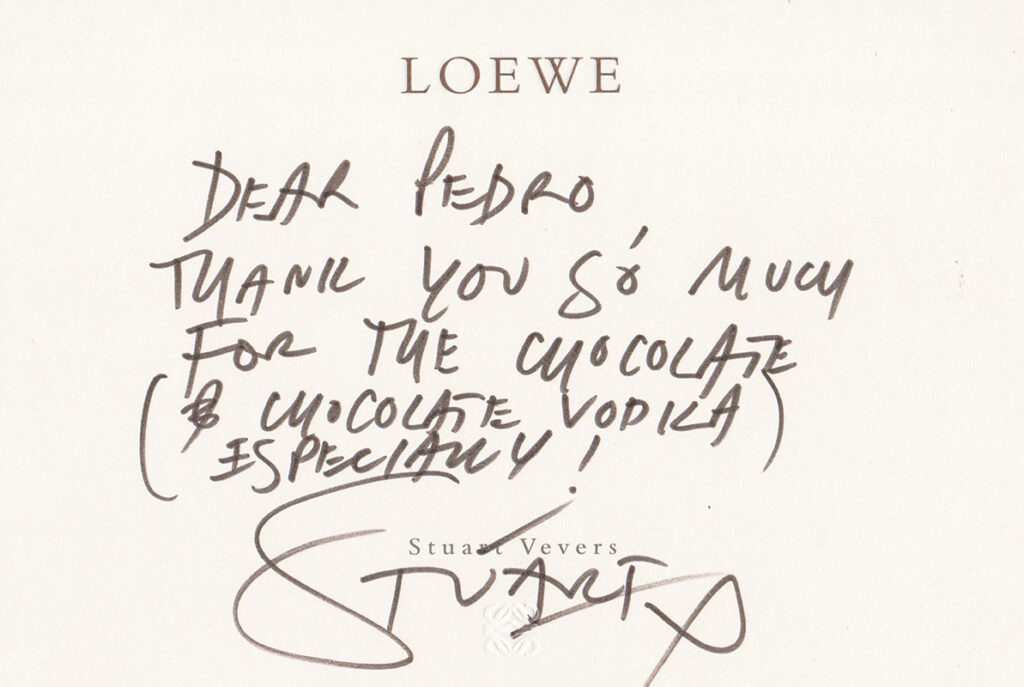 LOEWE
DEAR PEDRO
THANK YOU SO MUCH
FOR THE CHOCOLATE
(& CHOCOLATE VODKA)
ESPECIALLY!
Stuart Vevers
STUART X